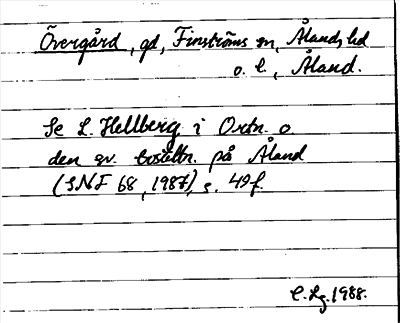 Övergård, gd, Finströms sn, Ålands hd
o. l., Åland.
Se L. Hellberg i Ortn. o.
den sv. bosättn. på Åland
(SNF 68, 1987), s. 49f.
C. Lg. 1988.